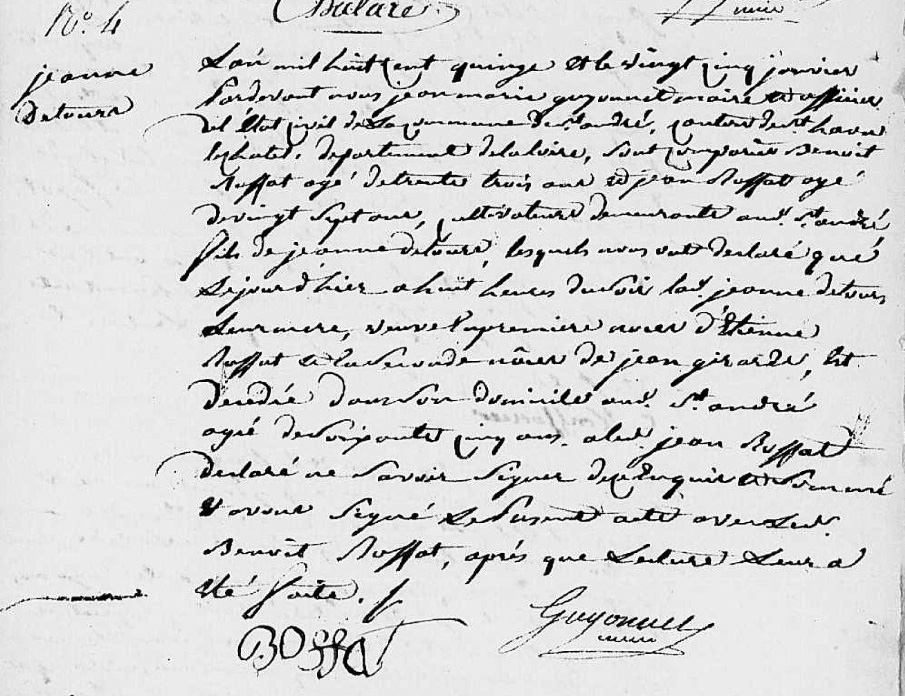 N.° 4
jeanne
Detours
L'an mil huit cent quinze et le vingt cinq janvier
Pardevant nous jean marie guyonnet maire et officier
de l'État civil de la commune de St. andré, canton de St. haon
le chatel, departement de la loire, sont comparus Benoit
Roffat agé de trente trois ans et jean Roffat agé
de vingt sept ans, cultivateurs demeurants aud. St. andré
fils de jeanne detours, lesquels nous ont declaré que
Le jour d'hier a huit heures du soir lad. jeanne detours
Leur mere, veuve en premiere noces d'Etienne
Roffat et en seconde nôces de jean girarde, Est
decedée dans son domicile aud. St. andré
agée de soixante cinq ans. a led. jean Roffat
declaré ne savoir signer de ce Enquis et sommé
& avons signé Le present acte avec led.
Benoit Roffat, après que Lecture Leur a
Eté faite.
Guyonnet
BOffAT